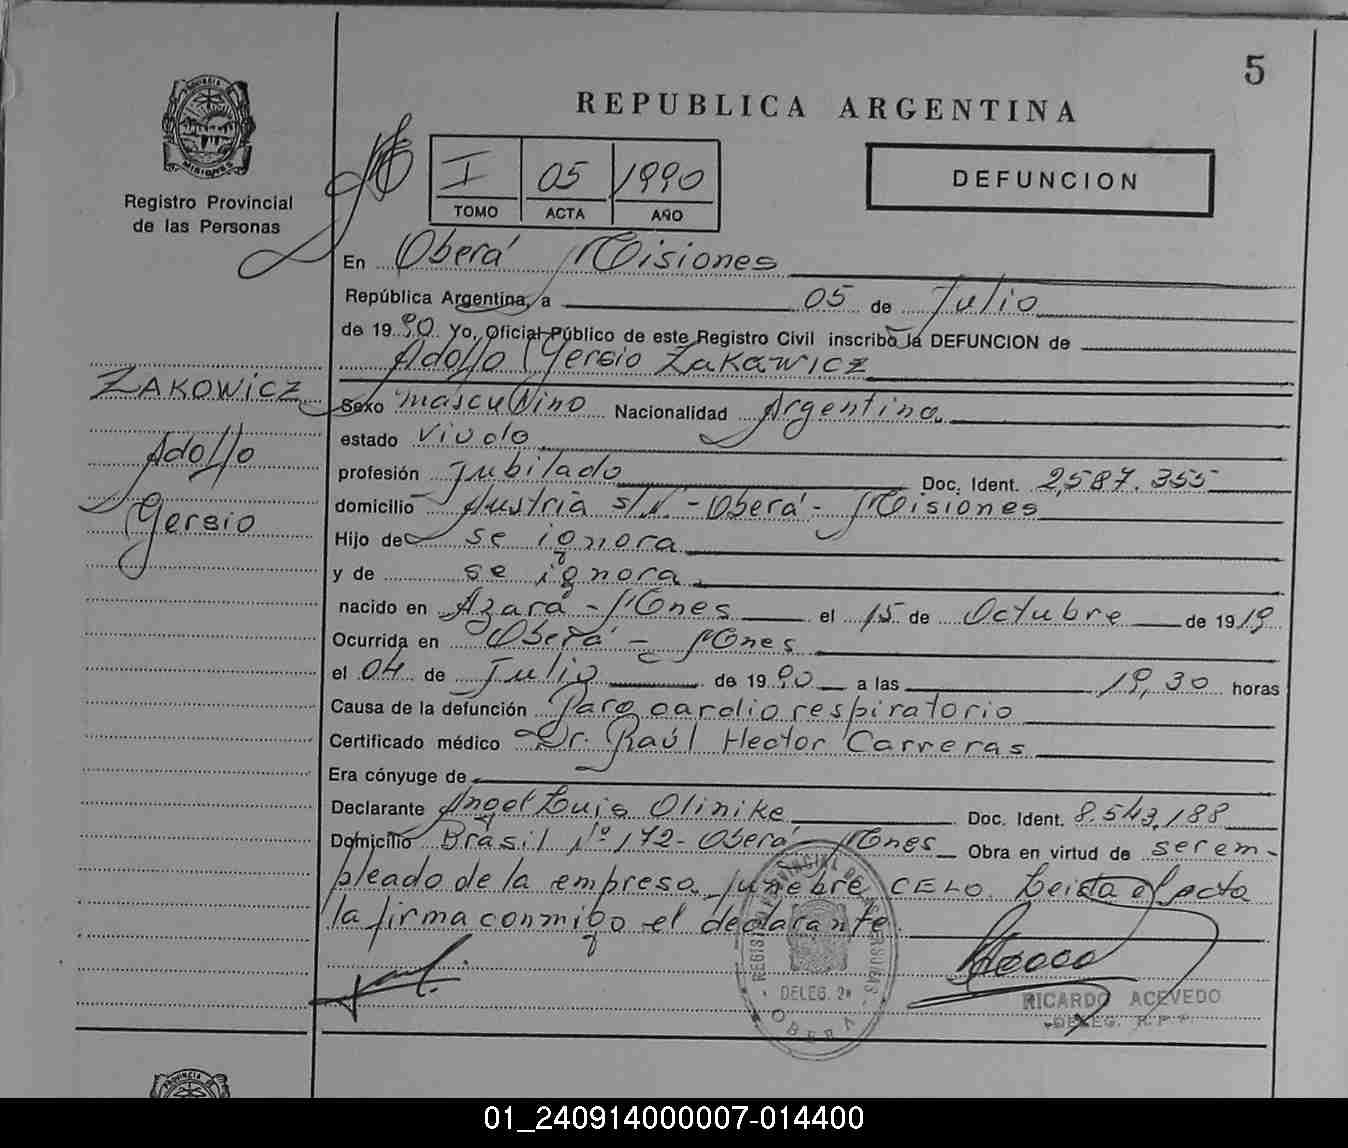 5
REPUBLICA ARGENTINA
PROVINCIA DE
MISIONES
Registro Provincial
de las Personas
I 05 1990
TOMO ACTA AÑO
DEFUNCION
En Oberá Misiones
República Argentina, a 05 de Julio
de 1990 Yo, Oficial Público de este Registro Civil inscribo la DEFUNCION de
Adolfo Gersio Zakawicz
ZAKOWICZ
Adolfo
Gersio
Sexo masculino Nacionalidad Argentina
estado Viudo
profesión Jubilado Doc. Ident. 2,587.355
domicilio Austria s/N. - Oberá - Misiones
Hijo de se ignora
y de se ignora
nacido en Azara - Mnes el 15 de Octubre de 1919
Ocurrida en Oberá - Mnes
el 04 de Julio de 1990 a las 19,30 horas
Causa de la defunción Paro cardio respiratorio
Certificado médico Dr. Raúl Hector Carreras
Era cónyuge de
Declarante Angel Luis Olinike Doc. Ident. 8.543.188
Domicilio Brasil Nº 172 - Oberá Mnes Obra en virtud de ser em-
pleado de la empresa funebre CELO. Leida el acta
la firma conmigo el declarante.
REGISTRO PROVINCIAL DE LAS PERSONAS
DELEG. 2ª
OBERA
RICARDO ACEVEDO
DELEG. R.P.P.
PROVINCIA
01_240914000007-014400